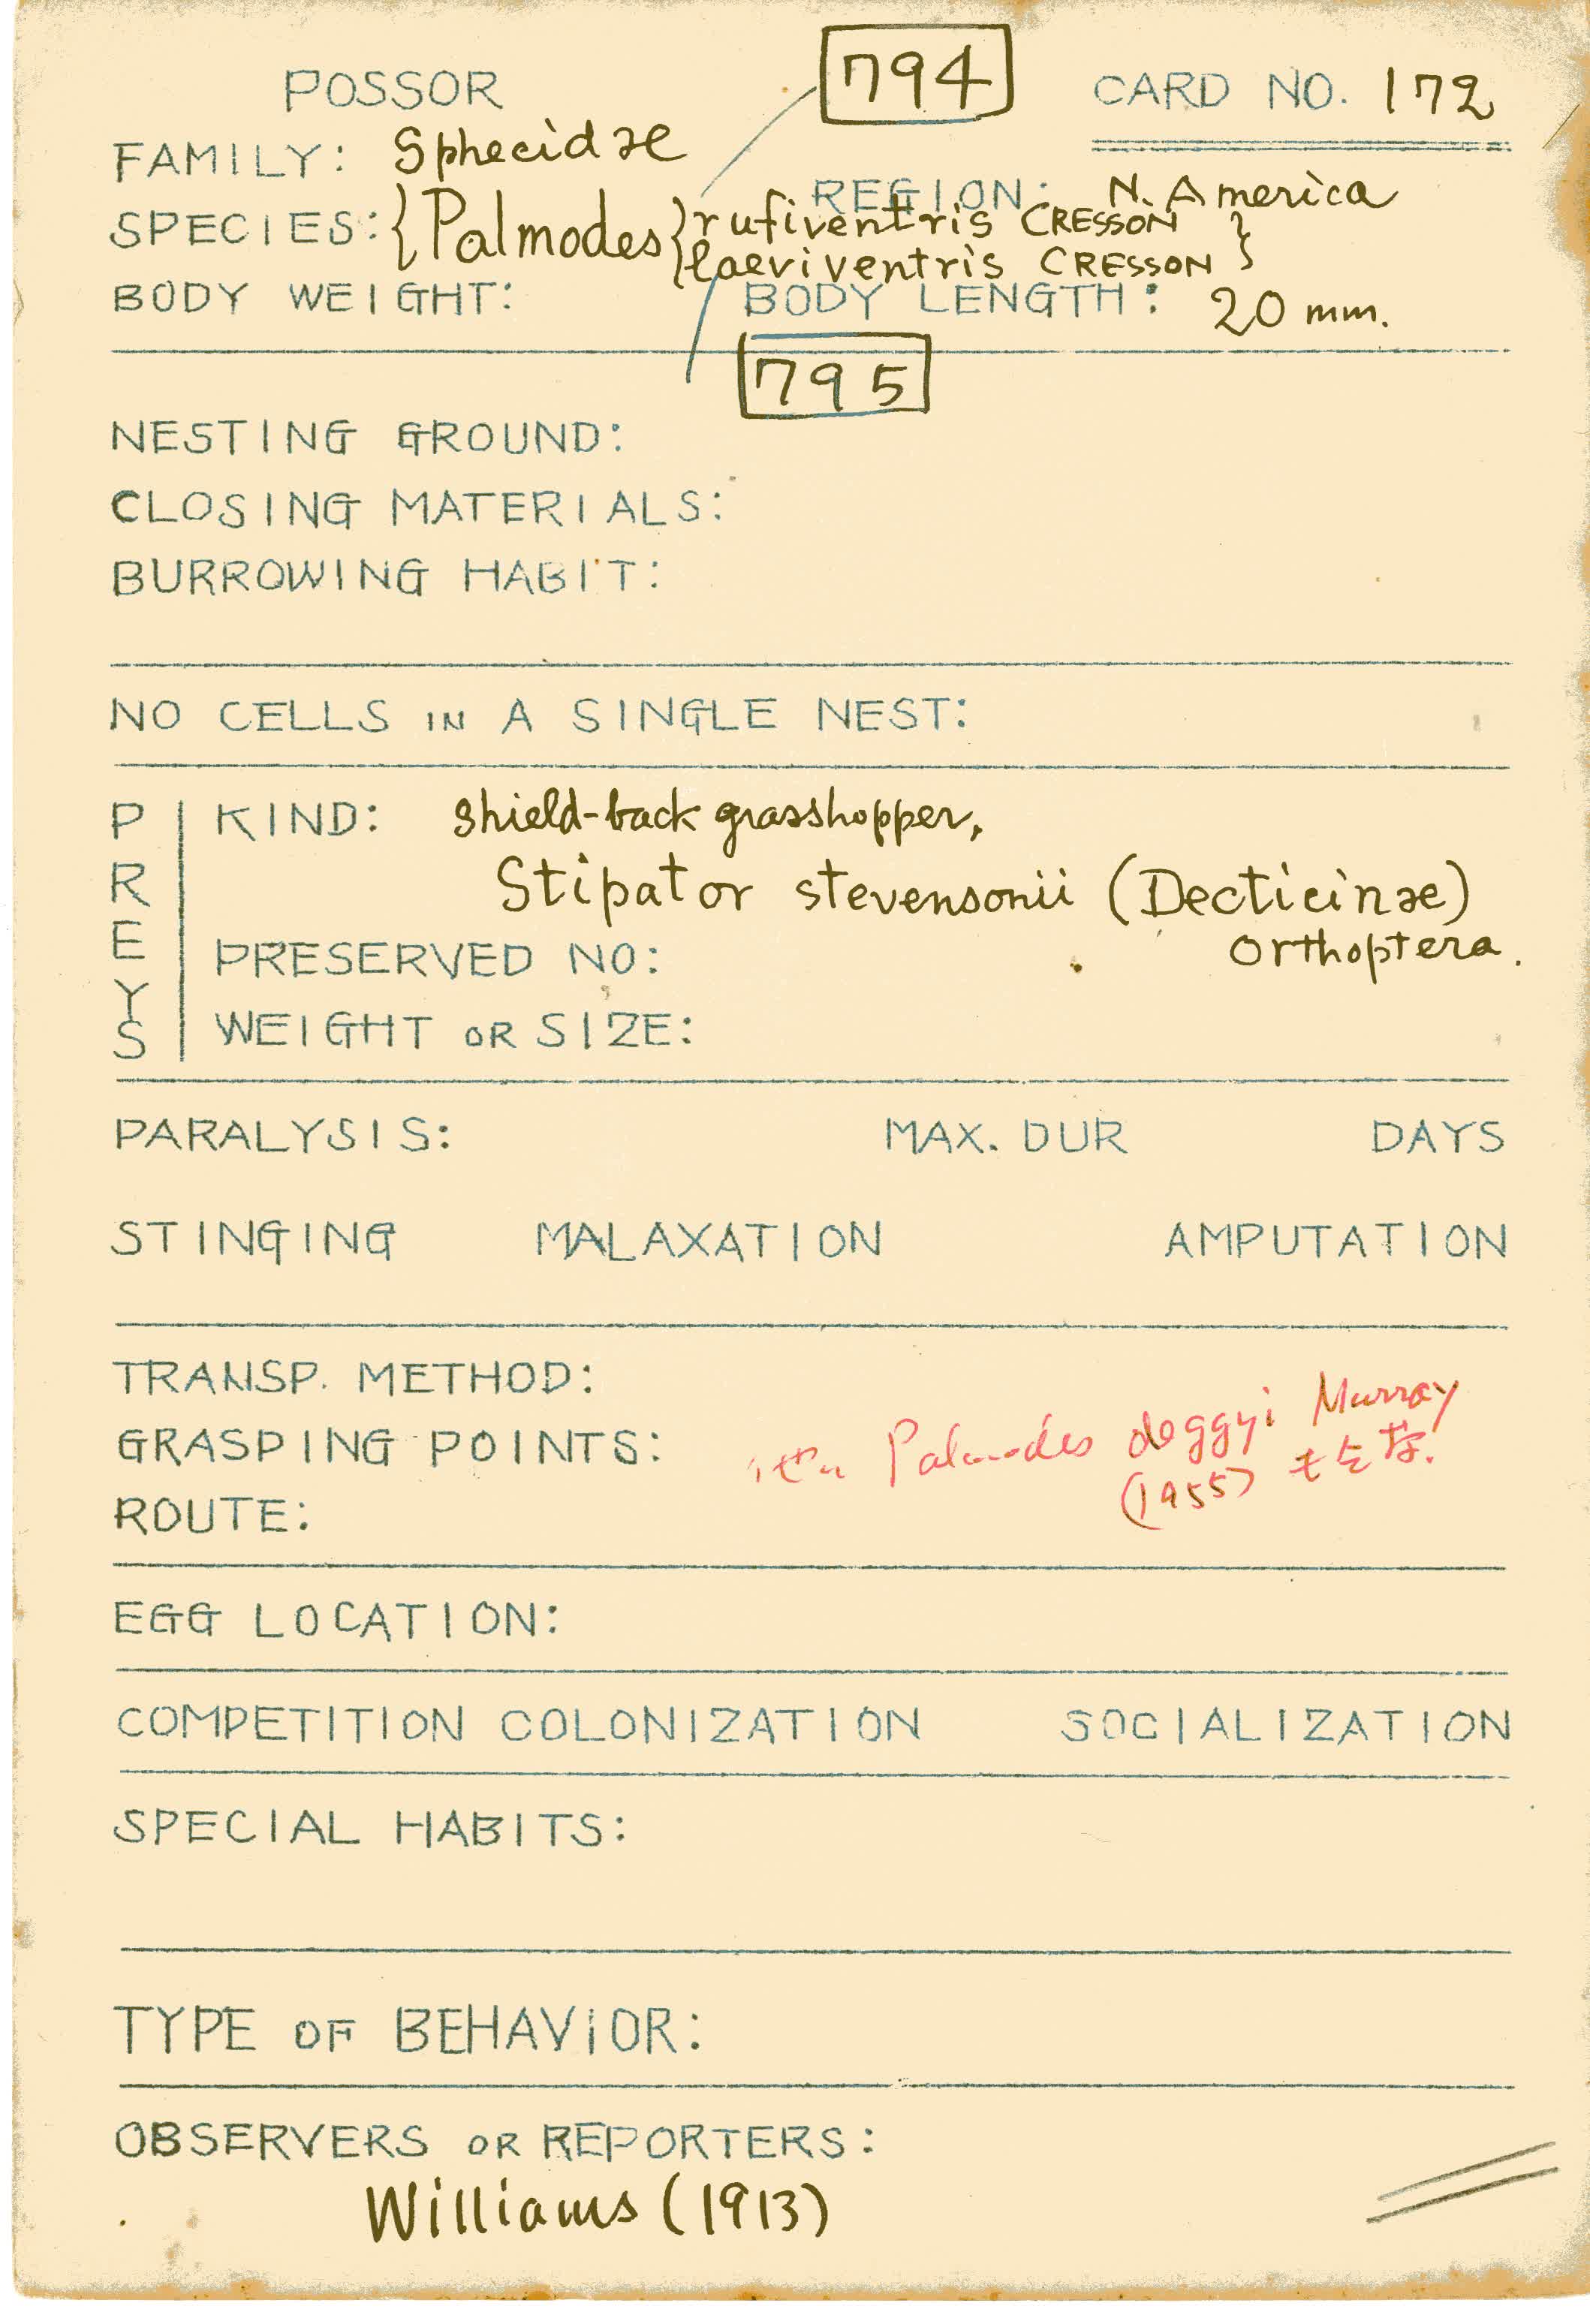 794
POSSOR CARD NO. 172
FAMILY: Sphecidae
REGION: N. America
SPECIES: {Palmodes {rufiventris CRESSON }
{laeviventris CRESSON }
BODY WEIGHT: BODY LENGTH: 20 mm.
795
NESTING GROUND:
CLOSING MATERIALS:
BURROWING HABIT:
NO CELLS IN A SINGLE NEST:
PREYS
KIND: shield-back grasshopper,
Stipator stevensonii (Decticinae)
Orthoptera.
PRESERVED NO:
WEIGHT OR SIZE:
PARALYSIS: MAX. DUR DAYS
STINGING MALAXATION AMPUTATION
TRANSP. METHOD:
GRASPING POINTS:
Palmodes deggyi Murray
(1955)
ROUTE:
EGG LOCATION:
COMPETITION COLONIZATION SOCIALIZATION
SPECIAL HABITS:
TYPE OF BEHAVIOR:
OBSERVERS OR REPORTERS:
Williams (1913)